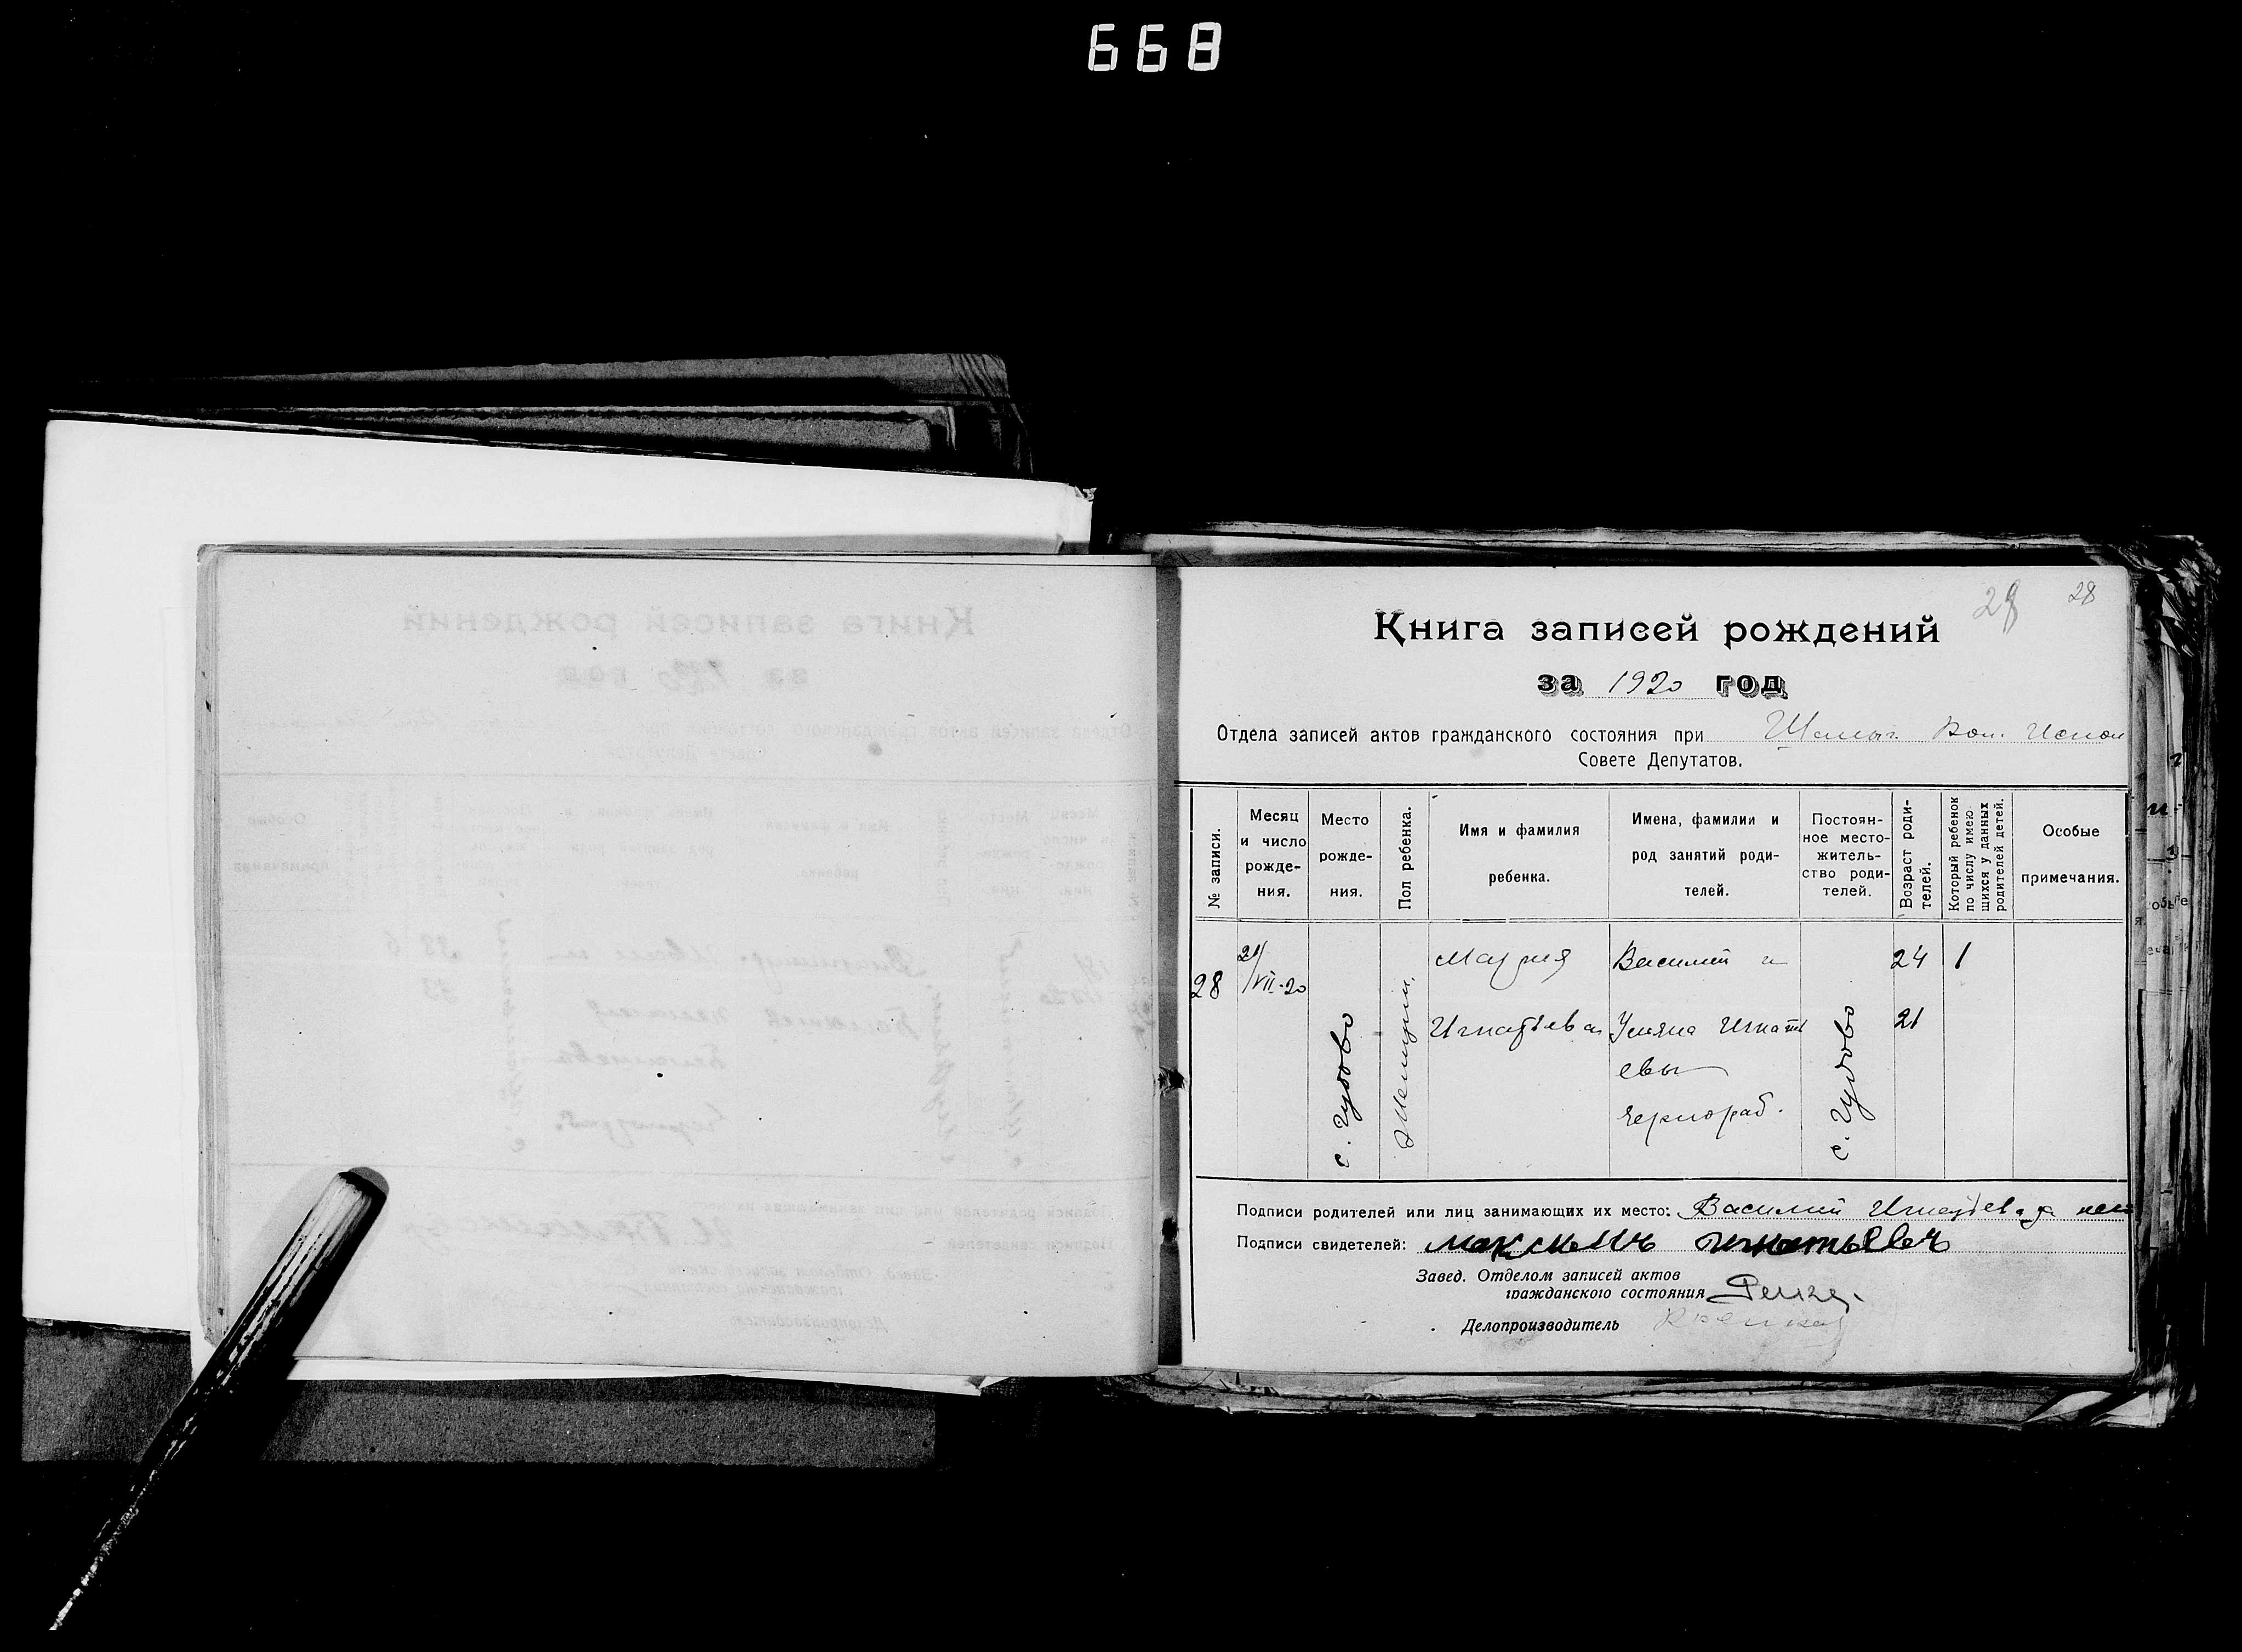 668
28 28
Книга записей рождений
за 1920 год
Отдела записей актов гражданского состояния при Вол. Испол
Совете Депутатов.
№ записи.
Месяц
и число
рожде-
ния.
Место
рожде-
ния.
Пол ребенка.
Имя и фамилия
ребенка.
Имена, фамилии и
род занятий роди-
телей.
Постоян-
ное место-
житель-
ство роди-
телей.
Возраст роди-
телей.
Который ребенок
по числу имею-
щихся у данных
родителей детей.
Особые
примечания.
28
VII-20
с. Чудово
Женщин.
Мария
Игнатьева
Василий и
Ульяна Игнать
евы
чернораб.
с. Чудово
24
21
1
Подписи родителей или лиц занимающих их место: Василий Игнатьев
Подписи свидетелей: игнатьевъ
Завед. Отделом записей актов
гражданского состояния
Делопроизводитель